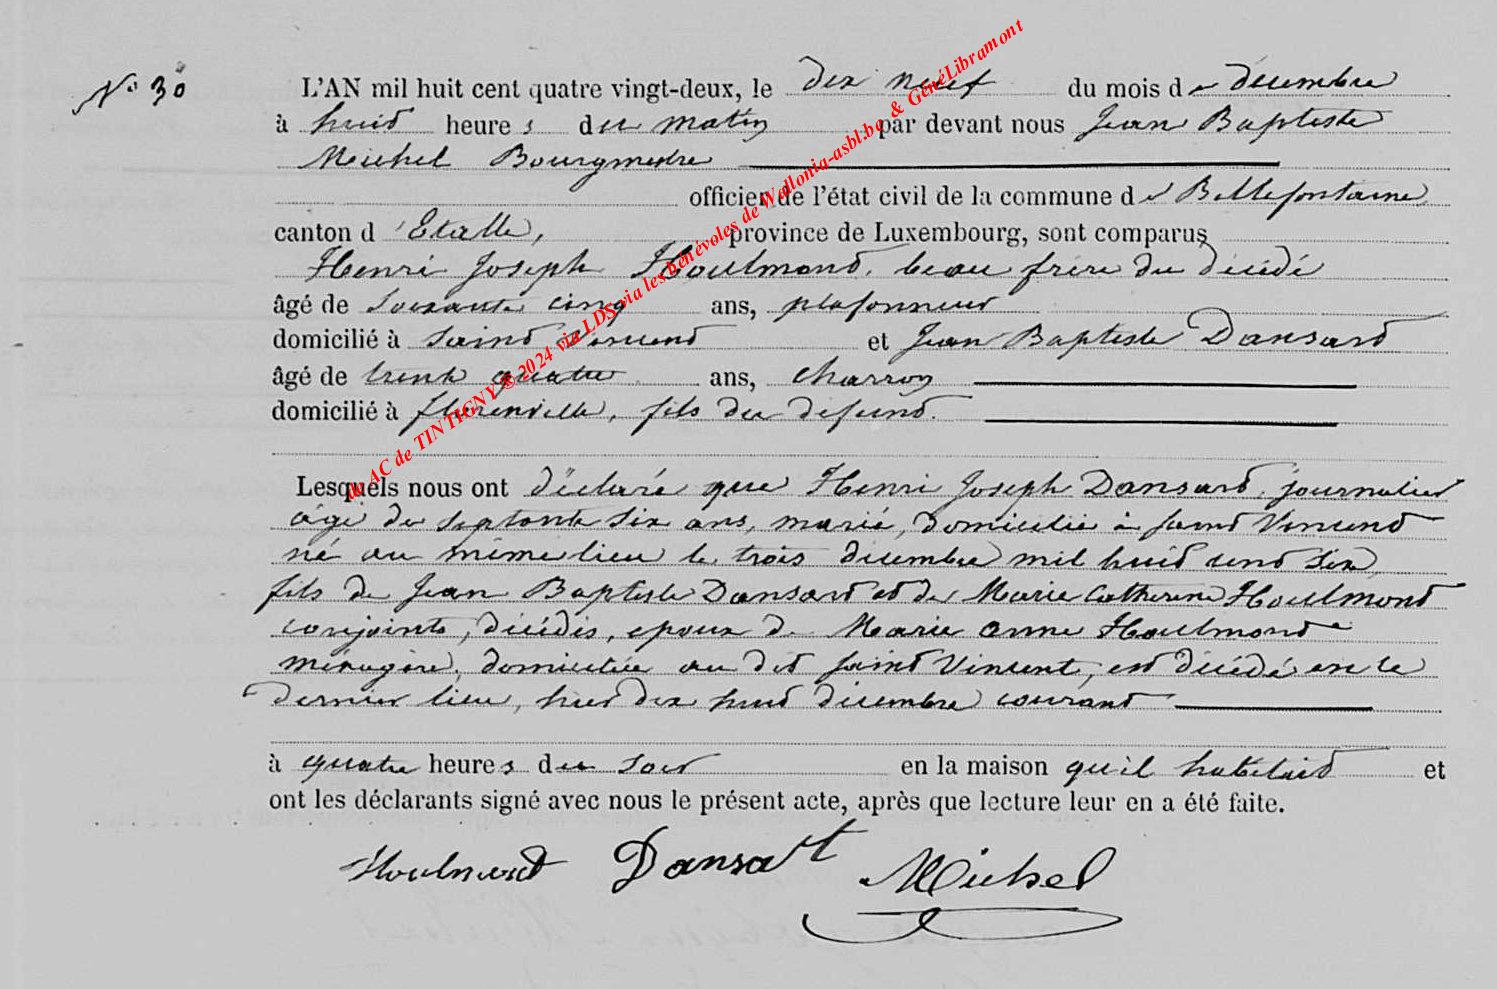 N° 30
L'AN mil huit cent quatre vingt-deux, le dix neuf du mois de décembre
à huit heures du matin par devant nous Jean Baptiste
Michel Bourgmestre
officier de l'état civil de la commune de Bellefontaine,
canton d'Etalle, province de Luxembourg, sont comparus
Henri Joseph Houlmont, beau frère du décédé
âgé de soixante cinq ans, plafonneur
domicilié à Saint Vincent et Jean Baptiste Dansart
âgé de trente quatre ans, charron
domicilié à Florenville, fils du défunt.
Lesquels nous ont déclaré que Henri Joseph Dansart, journalier
âgé de septante six ans, marié, domicilié à Saint Vincent
né au même lieu le trois décembre mil huit cent six,
fils de Jean Baptiste Dansart et de Marie Catherine Houlmont
conjoints, décédés, époux de Marie Anne Houlmont
ménagère, domiciliée au dit Saint Vincent, est décédé en ce
dernier lieu, hier dix huit décembre courant
à quatre heures du soir en la maison qu'il habitait et
ont les déclarants signé avec nous le présent acte, après que lecture leur en a été faite.
Houlmont Dansart Michel
de AC de TINTIGNY © 2024 via LDS via les bénévoles de Wallonia-asbl.be & GénéLibramont